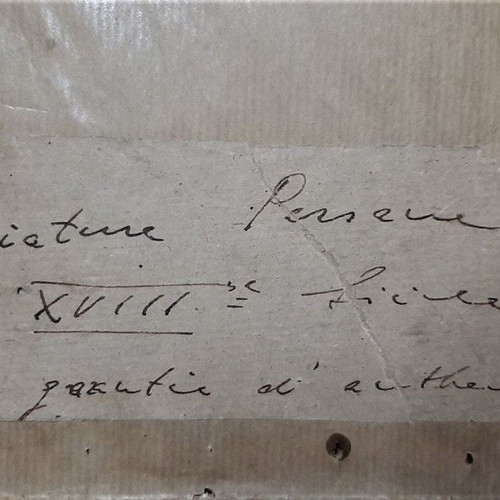 iature Persane
XVIIIe Siècle
garantie d'authen